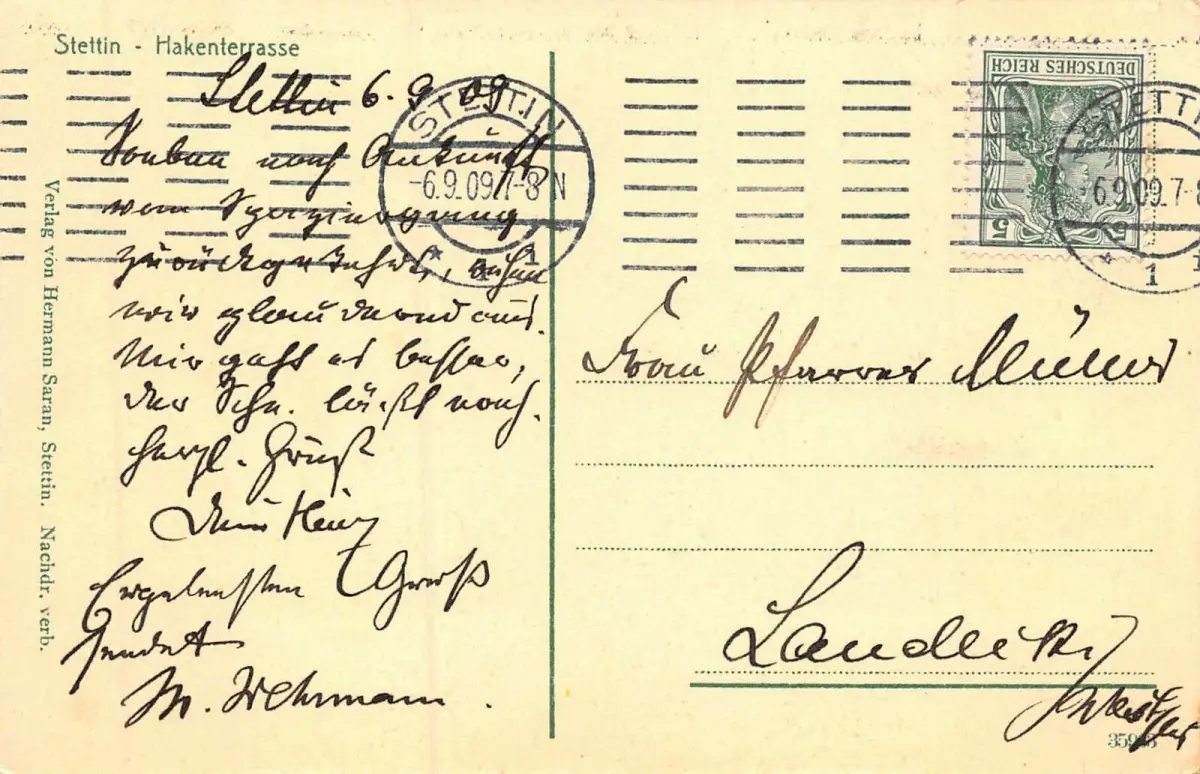 Stettin - Hakenterrasse
Stettin 6. 9 09
Soeben nach Ankunft
vom Spaziergang
zurückgekehrt, ruhen
wir plaudernd aus.
Mir geht es besser,
der Schn. läßt nach.
Herzl. Grüße
Dein Heinz
Ergebensten Gruß
sendet
M. Wehrmann.
Verlag von Hermann Saran, Stettin. Nachdr. verb.
STETTIN
-6.9.09.7-8 N
* 1
DEUTSCHES REICH
5
STETTIN
-6.9.09.7-8
* 1
Frau Pfarrer Müller